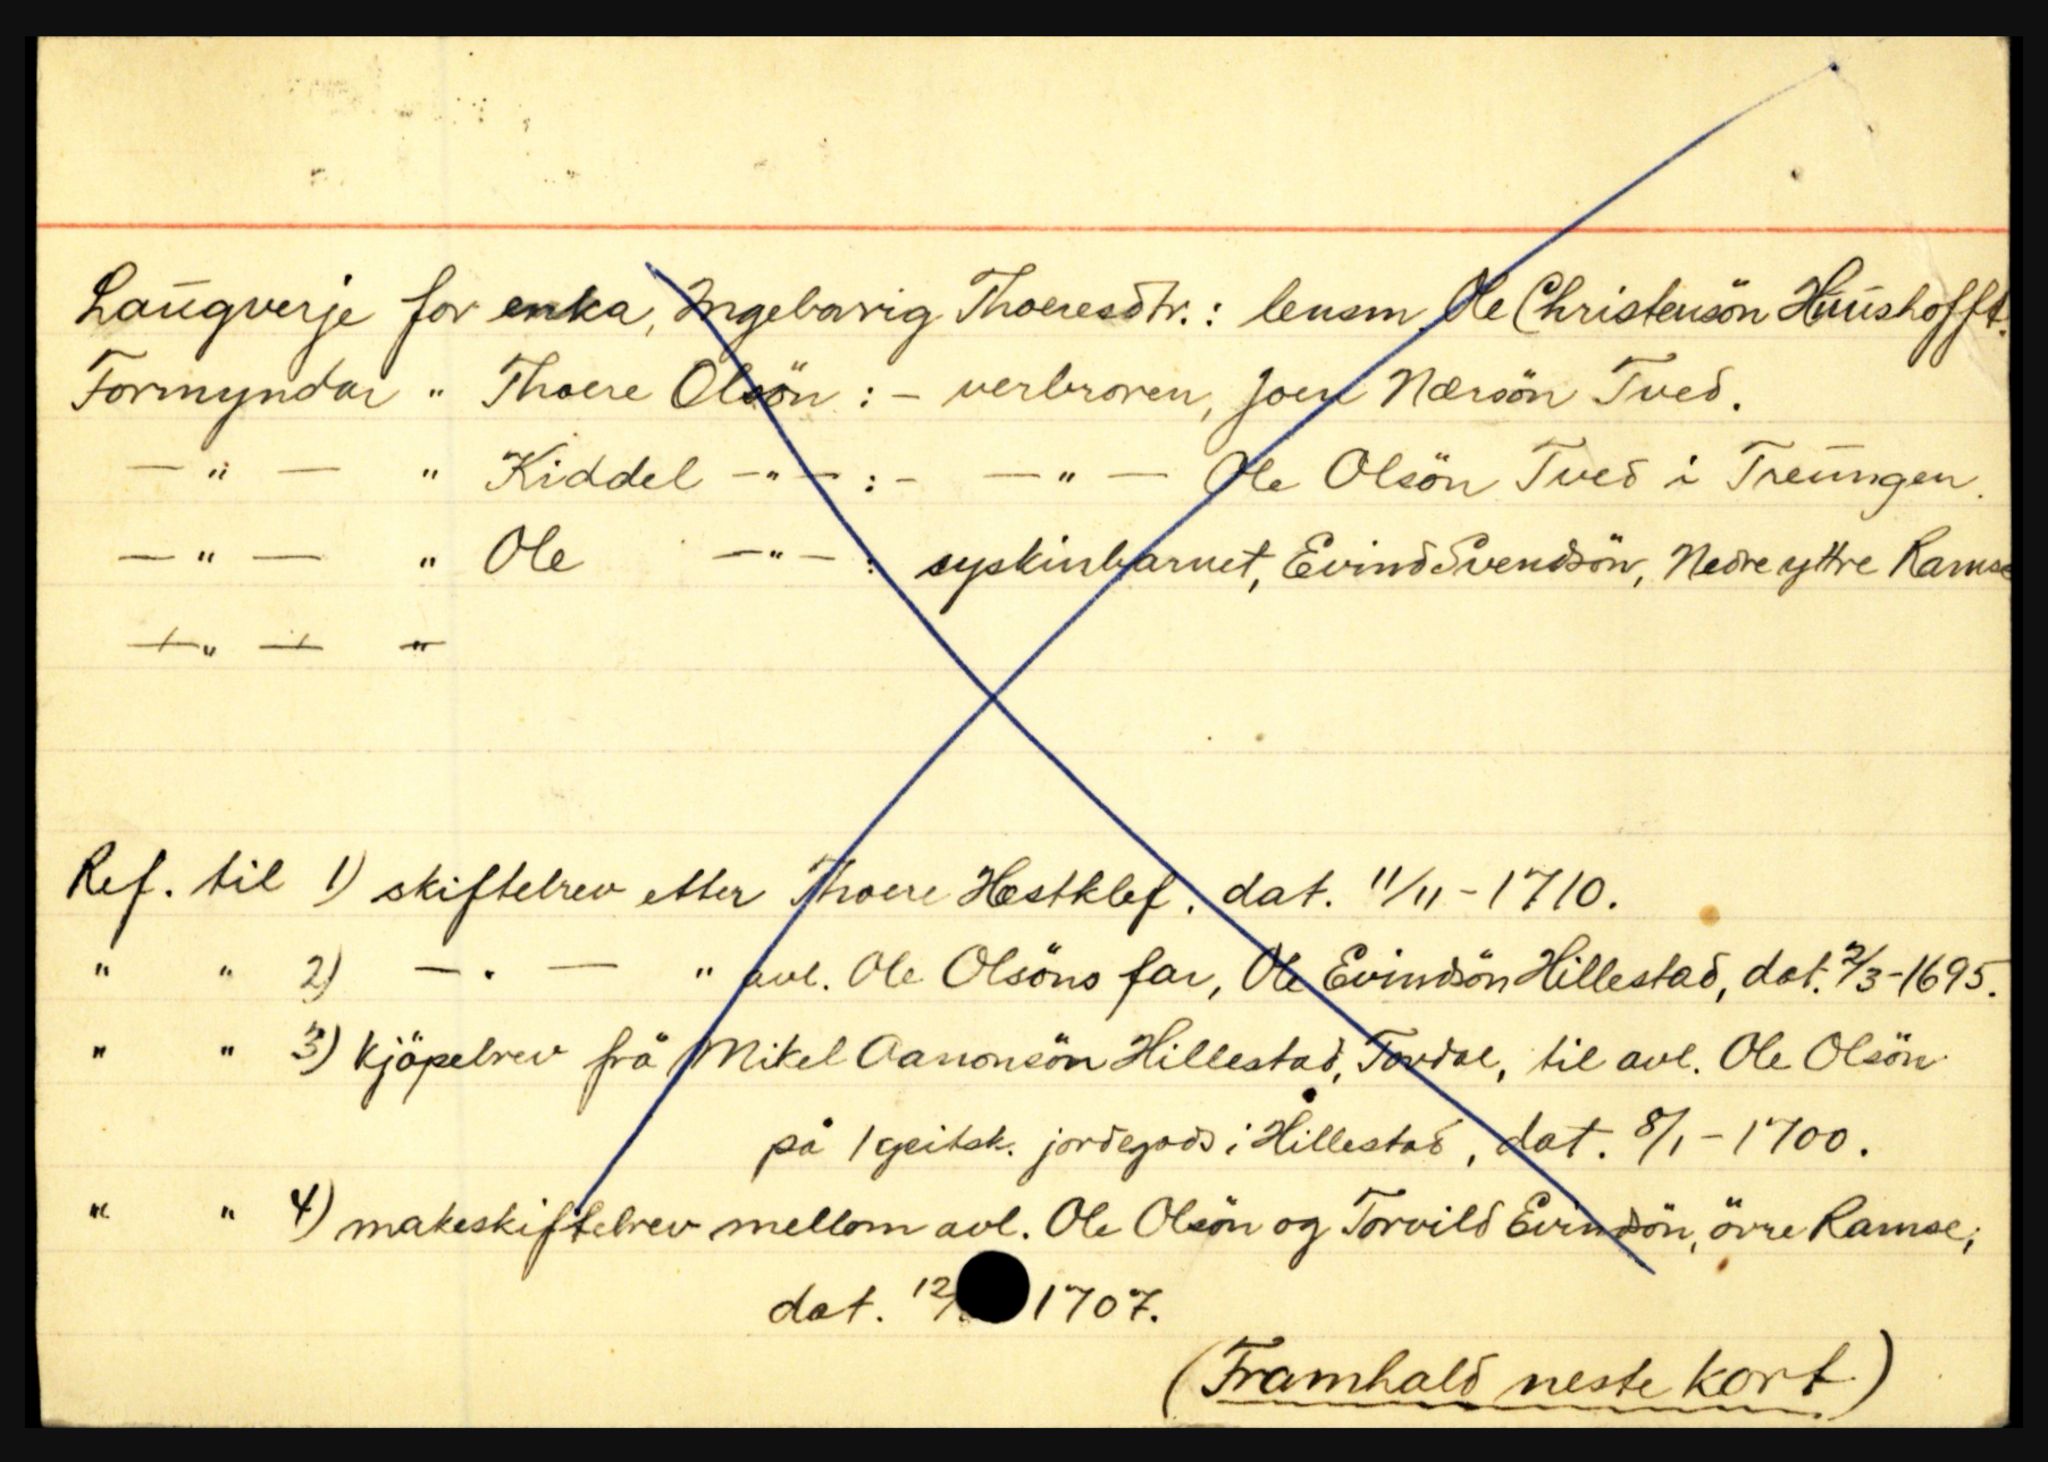 Laugverje for enka, Ingebarrig Thoeresdtr.: lensm. Ole Christensön Huushofft.
Formyndar " Thoere Olsön : - verbroren, Joen Nærsön Tved.
— " — " Kiddel — " — : - — " — Ole Olsön Tved i Treungen.
— " — " Ole — " — : syskinbarnet, Evind Svendsön, Nedre yttre Ramse
— " — "
Ref. til 1) skiftebrev etter Thoere Hestklef. dat. 11/11 - 1710.
" " 2) — " — " avl. Ole Olsöns far, Ole Evindsön Hillestad, dat. 2/3 - 1695.
" " 3) kjöpebrev frå Mikel Aanonsön Hillestad, Tovdal, til avl. Ole Olsön
på 1 geitsk. jordegods i Hillestad, dat. 8/1 - 1700.
" " 4) makeskiftebrev mellom avl. Ole Olsön og Torvild Evindsön, övre Ramse,
dat. 12/ 1707.
(Framhald neste kort.)